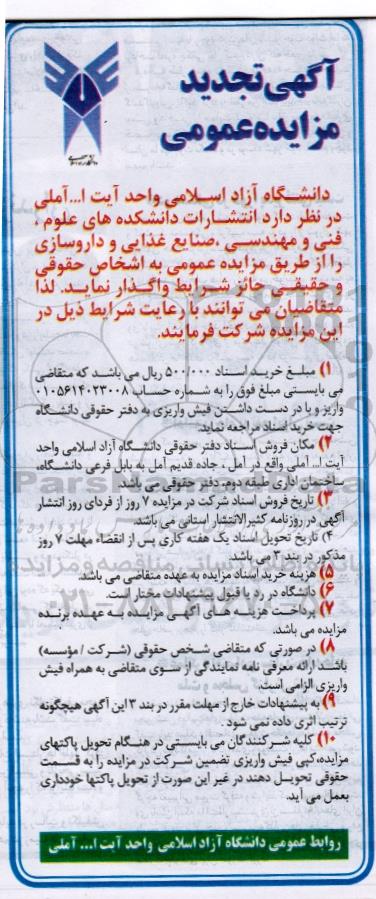 آگهی تجدید
مزایده عمومی
دانشگاه آزاد اسلامی واحد آیت ا...آملی
در نظر دارد انتشارات دانشکده های علوم ،
فنی و مهندسی ،صنایع غذایی و داروسازی
را از طریق مزایده عمومی به اشخاص حقوقی
و حقیقی حائز شرایط واگذار نماید. لذا
متقاضیان می توانند با رعایت شرایط ذیل در
این مزایده شرکت فرمایند.
۱) مبلغ خرید اسناد ۵۰۰/۰۰۰ ریال می باشد که متقاضی
می بایستی مبلغ فوق را به شماره حساب ۰۱۰۵۶۱۴۰۲۳۰۰۸
واریز و با در دست داشتن فیش واریزی به دفتر حقوقی دانشگاه
جهت خرید اسناد مراجعه نماید.
۲) مکان فروش اسناد دفتر حقوقی دانشگاه آزاد اسلامی واحد
آیت ا... آملی واقع در آمل ، جاده قدیم آمل به بابل فرعی دانشگاه،
ساختمان اداری طبقه دوم، دفتر حقوقی می باشد.
۳) تاریخ فروش اسناد شرکت در مزایده ۷ روز از فردای روز انتشار
آگهی در روزنامه کثیرالانتشار استانی می باشد.
۴) تاریخ تحویل اسناد یک هفته کاری پس از انقضاء مهلت ۷ روز
مذکور در بند ۳ می باشد.
۵) هزینه خرید اسناد مزایده به عهده متقاضی می باشد.
۶) دانشگاه در رد یا قبول پیشنهادات مختار است.
۷) پرداخت هزینه های آگهی مزایده به عهده برنده
مزایده می باشد.
۸) در صورتی که متقاضی شخص حقوقی (شرکت / مؤسسه)
باشد ارائه معرفی نامه نمایندگی از سوی متقاضی به همراه فیش
واریزی الزامی است.
۹) به پیشنهادات خارج از مهلت مقرر در بند ۳ این آگهی هیچگونه
ترتیب اثری داده نمی شود .
۱۰) کلیه شرکنندگان می بایستی در هنگام تحویل پاکتهای
مزایده،کپی فیش واریزی تضمین شرکت در مزایده را به قسمت
حقوقی تحویل دهند در غیر این صورت از تحویل پاکتها خودداری
بعمل می آید.
روابط عمومی دانشگاه آزاد اسلامی واحد آیت ا... آملی